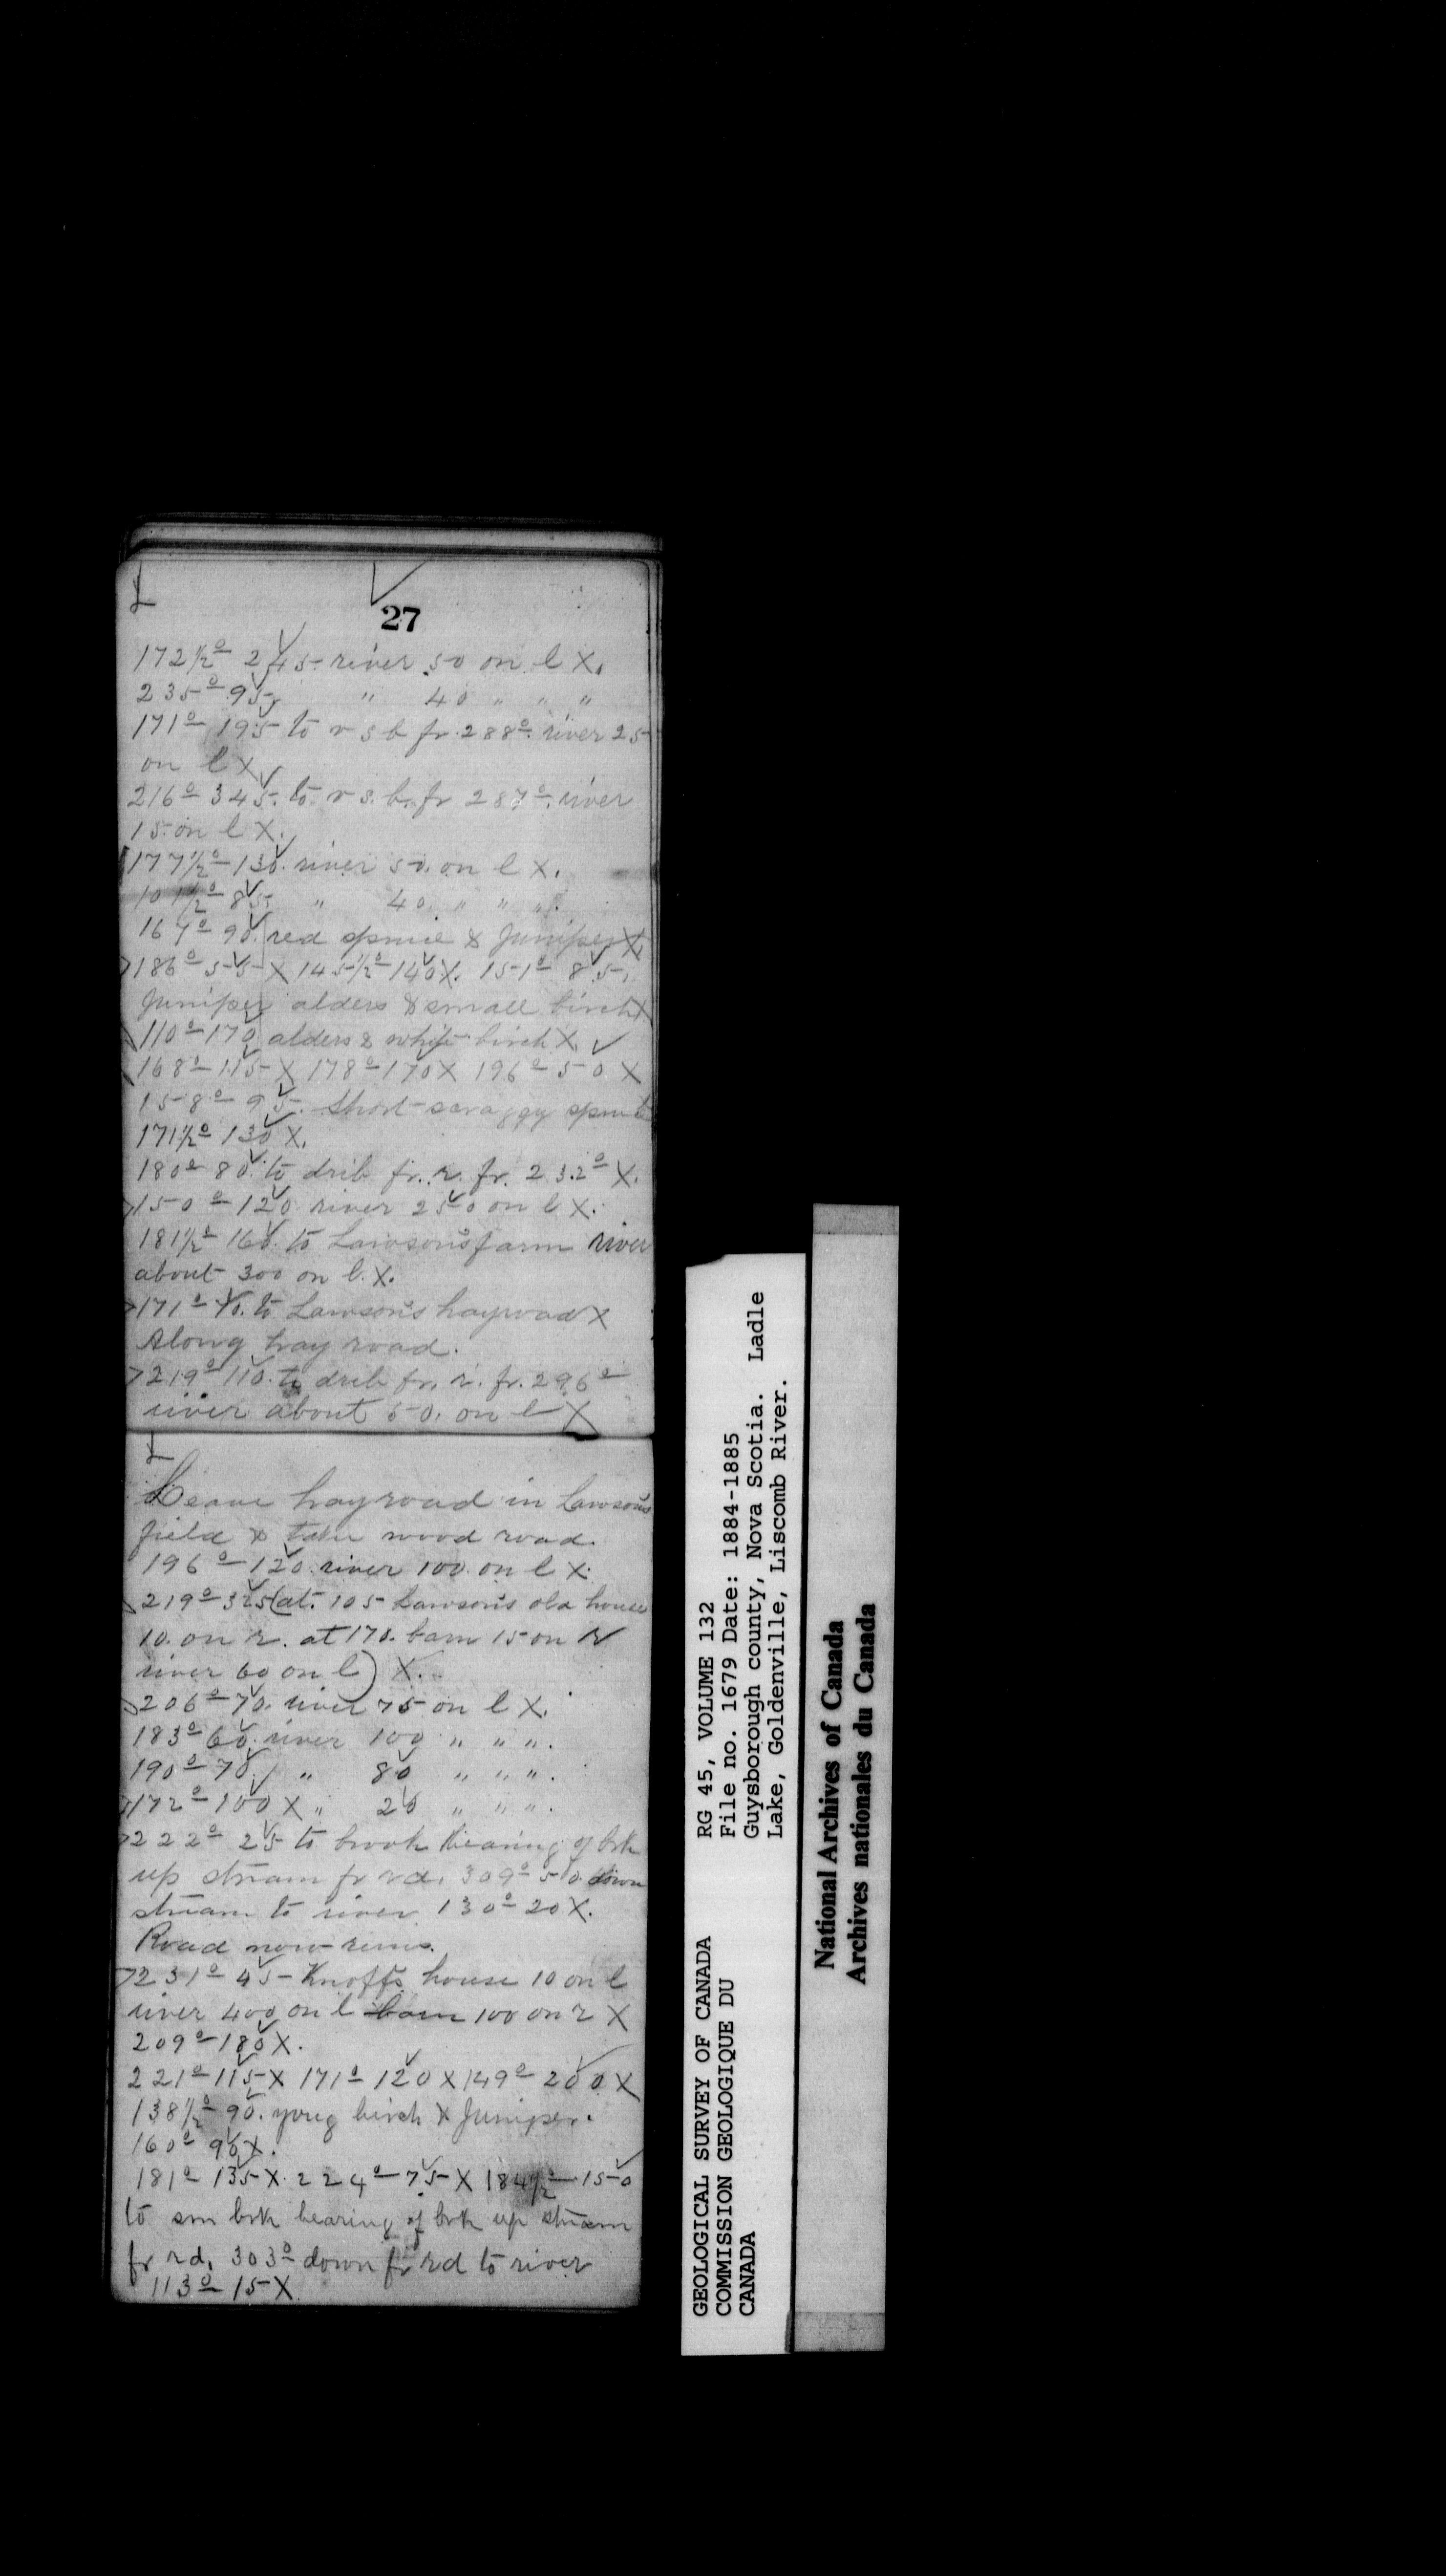 27
172½° 245. river 50 on l X.
235° 95. " 40 " " "
171° 195 to r s b fr. 288° river 25
on l X
216° 345. to r s. b. fr 287° river
15 on l X.
177½° 130. river 50. on l X.
101½° 85. " 40. " " ".
167° 90. red spruce & Juniper X.
186° 55 X 145½° 140 X. 151° 85.
Juniper alders & small birch X
110° 170 alders & white birch X.
168° 115 X 178° 170 X 196° 50 X
158° 95. Short scraggy spruce
171½° 130 X.
180° 80. to drib fr. r. fr. 232° X.
150° 120 river 250 on l X.
181½° 160. to Lawson's farm river
about 300 on l. X.
171° 70. to Lawson's hayroad X
Along hay road.
219° 110. to drib fr. r. fr. 296°
river about 50. on l X
Leave hayroad in Lawson's
field & take wood road.
196° 120. river 100. on l X.
219° 325 (at. 105 Lawson's old house
10. on r. at 170. barn 15 on r
river 60 on l) X.
206° 70. river 75 on l X.
183° 60. river 100 " " ".
190° 70. " 80 " " ".
172° 100 X " 20 " " ".
222° 25 to brook bearing of brk
up stream fr rd. 309° 50. down
stream to river 130° 20 X.
Road now
231° 45 Knofts house 10 on l
river 400 on l barn 100 on r X
209° 180 X.
221° 115 X 171° 120 X 149° 200 X
138½° 90. youg birch & Juniper.
160° 90 X.
181° 135 X. 224° 75 X 184½° 150
to sm brk bearing of brk up stream
fr rd. 303° down fr rd to river
113° 15 X.
GEOLOGICAL SURVEY OF CANADA
COMMISSION GEOLOGIQUE DU
CANADA
RG 45, VOLUME 132
File no. 1679 Date: 1884-1885
Guysborough county, Nova Scotia. Ladle
Lake, Goldenville, Liscomb River.
National Archives of Canada
Archives nationales du Canada